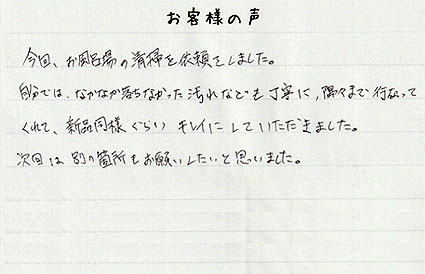 お客様の声
今回、お風呂場の清掃を依頼をしました。
自分では、なかなか落ちなかった汚れなども丁寧に、隅々まで行なって
くれて、新品同様ぐらい キレイにしていただきました。
次回は別の箇所もお願いしたいと思いました。